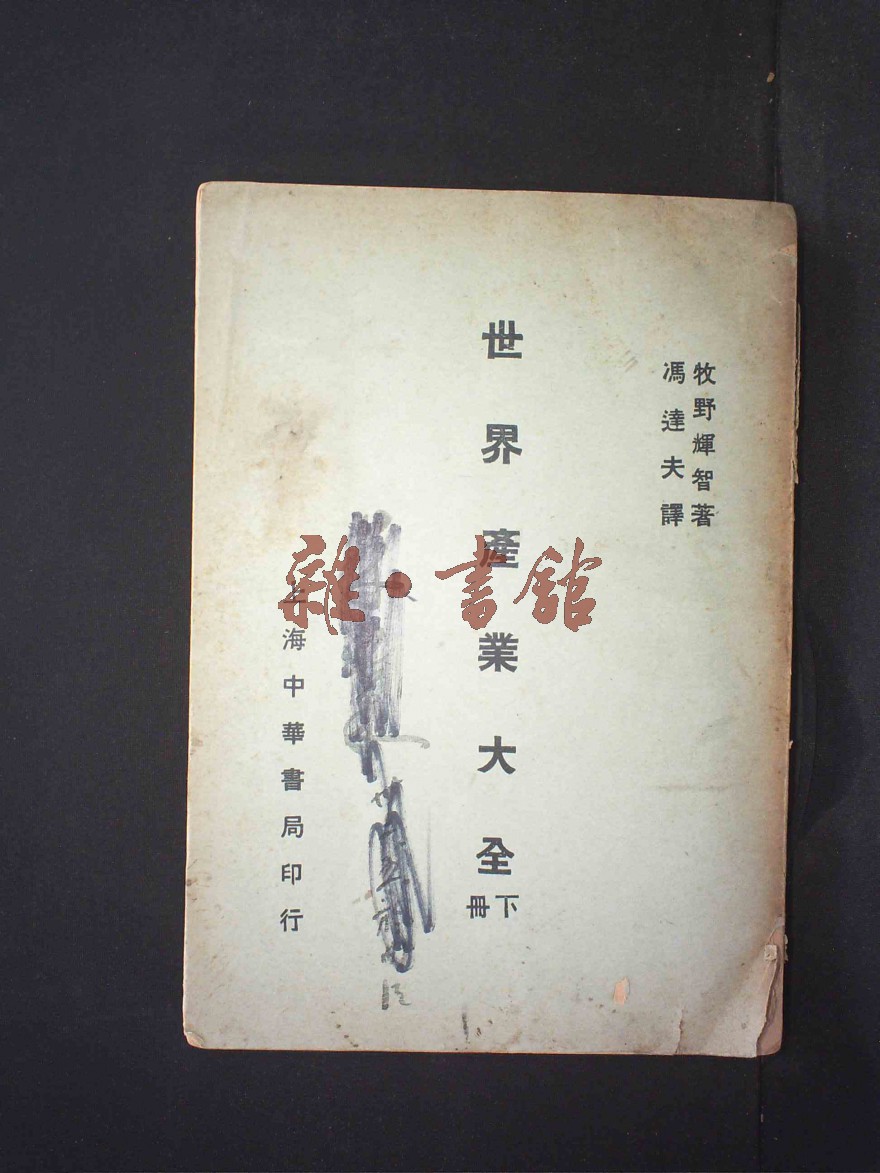 牧野輝智著
馮達夫譯
世界產業大全
下冊
上海中華書局印行
雜·書館